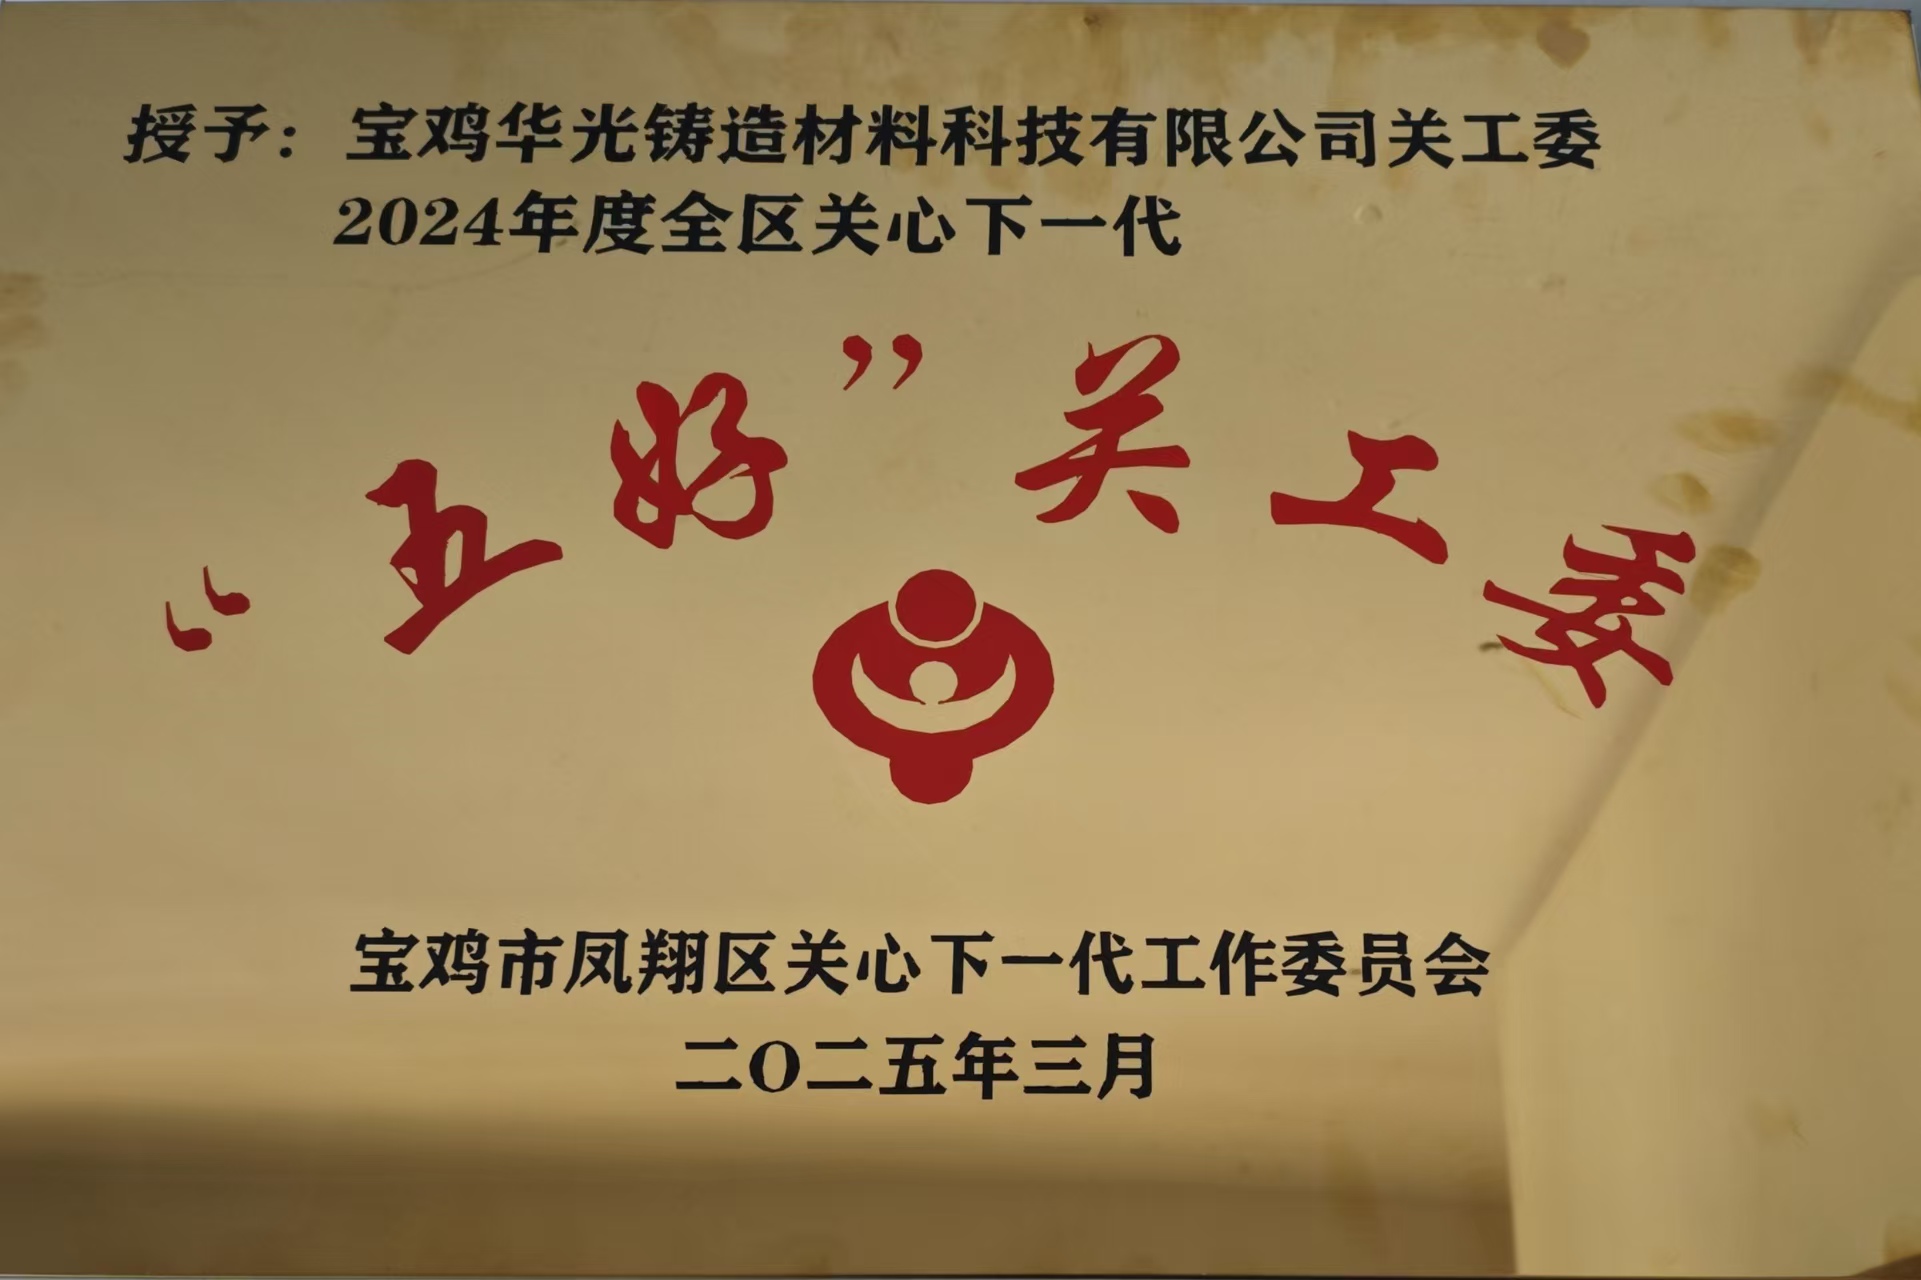 授予：宝鸡华光铸造材料科技有限公司关工委
2024年度全区关心下一代
“五好”关工委
宝鸡市凤翔区关心下一代工作委员会
二〇二五年三月